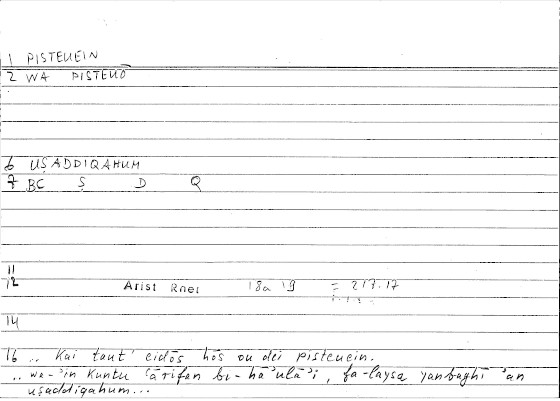 1 PISTEUEIN
2 WA PISTEUŌ
6 UṢADDIQAHUM
7 BC Ṣ D Q
11
12 Arist Rhet 18a 19 = 217.17
14
16 .. Kai taut' eidōs hōs ou dei pisteuein.
.. wa-ʾin kuntu ʿārifan bi-hāʾulāʾi, fa-laysa yanbaghī ʾan
uṣaddiqahum...